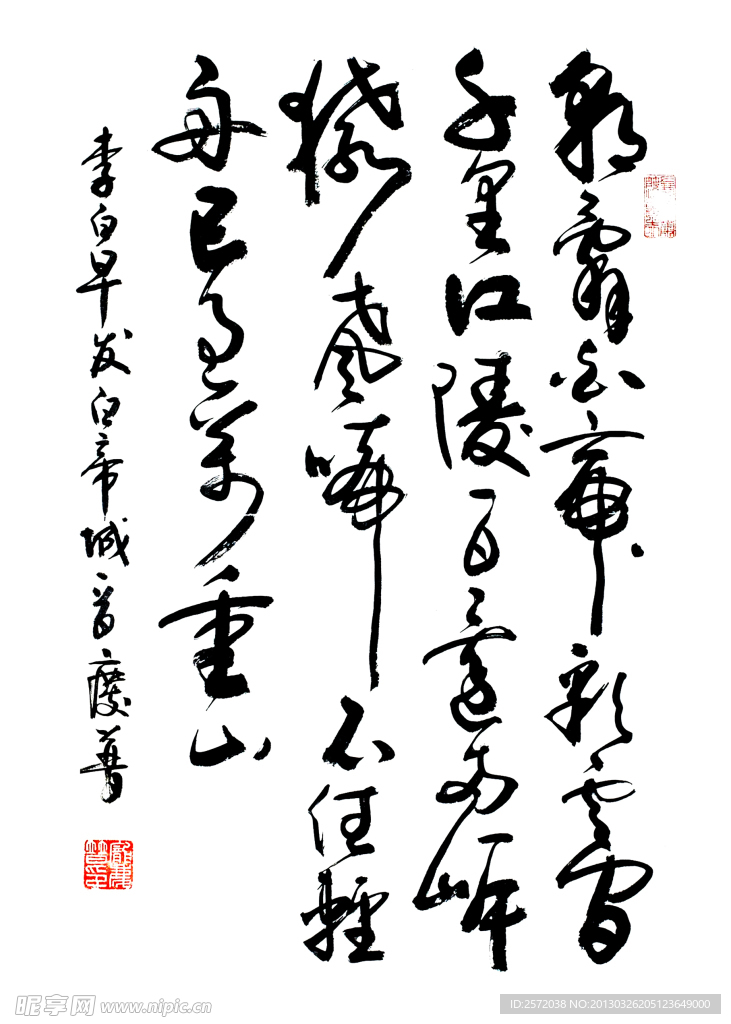 朝辭白帝彩雲間
千里江陵一日還兩岸
猿聲啼不住輕
舟已過萬重山
李白早发白帝城一首慶普
昵享网 www.nipic.cn
ID:2572038 NO:20130326205123649000